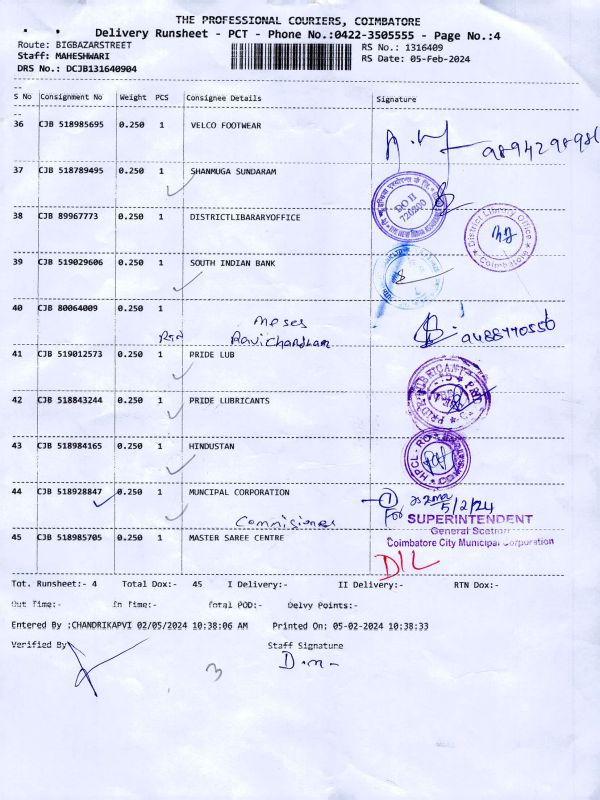 THE PROFESSIONAL COURIERS, COIMBATORE
Delivery Runsheet - PCT - Phone No.:0422-3505555 - Page No.:4
Route: BIGBAZARSTREET
RS No.: 1316409
Staff: MAHESHWARI
RS Date: 05-Feb-2024
DRS No.: DCJB131640904
S No Consignment No Weight PCS Consignee Details Signature
36 CJB 518985695 0.250 1 VELCO FOOTWEAR
37 CJB 518789495 0.250 1 SHANMUGA SUNDARAM
DO II
720200
38 CJB 89967773 0.250 1 DISTRICTLIBARARYOFFICE
District Library Office
Coimbatore
39 CJB 519029606 0.250 1 SOUTH INDIAN BANK
40 CJB 80064009 0.250 1
Moses
Ravichandran
9488770556
41 CJB 519012573 0.250 1 PRIDE LUB
42 CJB 518843244 0.250 1 PRIDE LUBRICANTS
43 CJB 518984165 0.250 1 HINDUSTAN
HPCL - RO
44 CJB 518928847 0.250 1 MUNCIPAL CORPORATION
Commisioner
1
5/2/24
For SUPERINTENDENT
General Section
Coimbatore City Municipal Corporation
45 CJB 518985705 0.250 1 MASTER SAREE CENTRE
D/L
Tot. Runsheet:- 4 Total Dox:- 45 I Delivery:- II Delivery:- RTN Dox:-
Out Time:- In Time:- Total POD:- Delvy Points:-
Entered By :CHANDRIKAPVI 02/05/2024 10:38:06 AM Printed On: 05-02-2024 10:38:33
Verified By Staff Signature
3